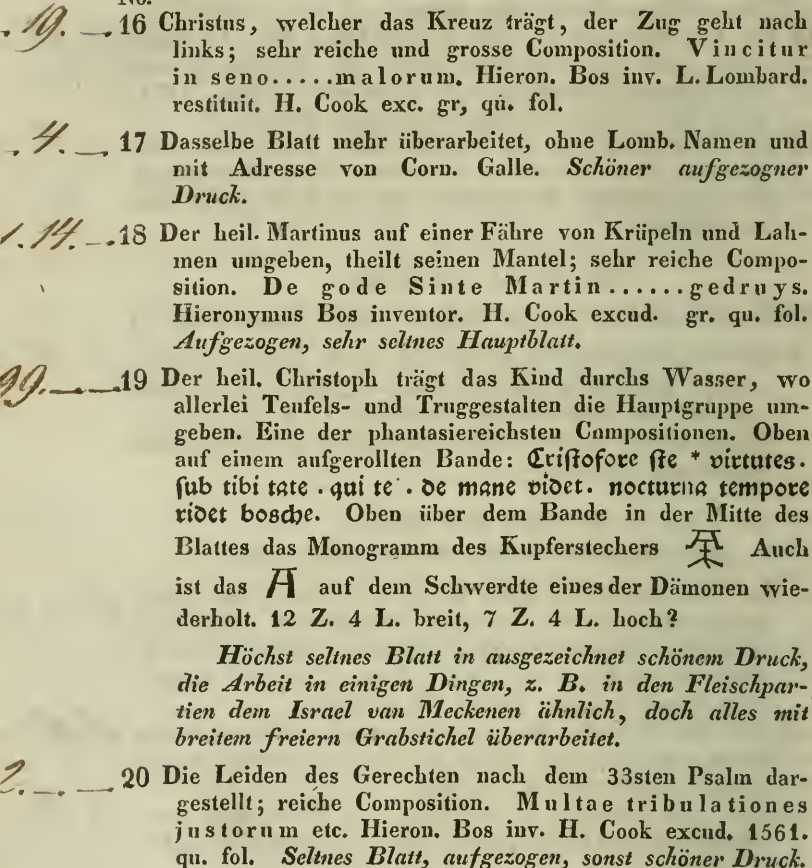 No.
. 19. — 16 Christus, welcher das Kreuz trägt, der Zug geht nach
links; sehr reiche und grosse Composition. Vincitur
in seno.....malorum. Hieron. Bos inv. L. Lombard.
restituit. H. Cook exc. gr, qu. fol.
. 4. — 17 Dasselbe Blatt mehr überarbeitet, ohne Lomb. Namen und
mit Adresse von Corn. Galle. Schöner aufgezogner
Druck.
1. 14. — 18 Der heil. Martinus auf einer Fähre von Krüpeln und Lah-
men umgeben, theilt seinen Mantel; sehr reiche Compo-
sition. De gode Sinte Martin......gedruys.
Hieronymus Bos inventor. H. Cook excud. gr. qu. fol.
Aufgezogen, sehr seltnes Hauptblatt.
99. — — 19 Der heil. Christoph trägt das Kind durchs Wasser, wo
allerlei Teufels- und Truggestalten die Hauptgruppe um-
geben. Eine der phantasiereichsten Compositionen. Oben
auf einem aufgerollten Bande: Cristofore ste * virtutes.
sub tibi tate . qui te . de mane videt. nocturna tempore
ridet bosche. Oben über dem Bande in der Mitte des
Blattes das Monogramm des Kupferstechers Auch
ist das A auf dem Schwerdte eines der Dämonen wie-
derholt. 12 Z. 4 L. breit, 7 Z. 4 L. hoch?
Höchst seltnes Blatt in ausgezeichnet schönem Druck,
die Arbeit in einigen Dingen, z. B. in den Fleischpar-
tien dem Israel van Meckenen ähnlich, doch alles mit
breitem freiern Grabstichel überarbeitet.
2. — . — 20 Die Leiden des Gerechten nach dem 33sten Psalm dar-
gestellt; reiche Composition. Multae tribulationes
justorum etc. Hieron. Bos inv. H. Cook excud. 1561.
qu. fol. Seltnes Blatt, aufgezogen, sonst schöner Druck.